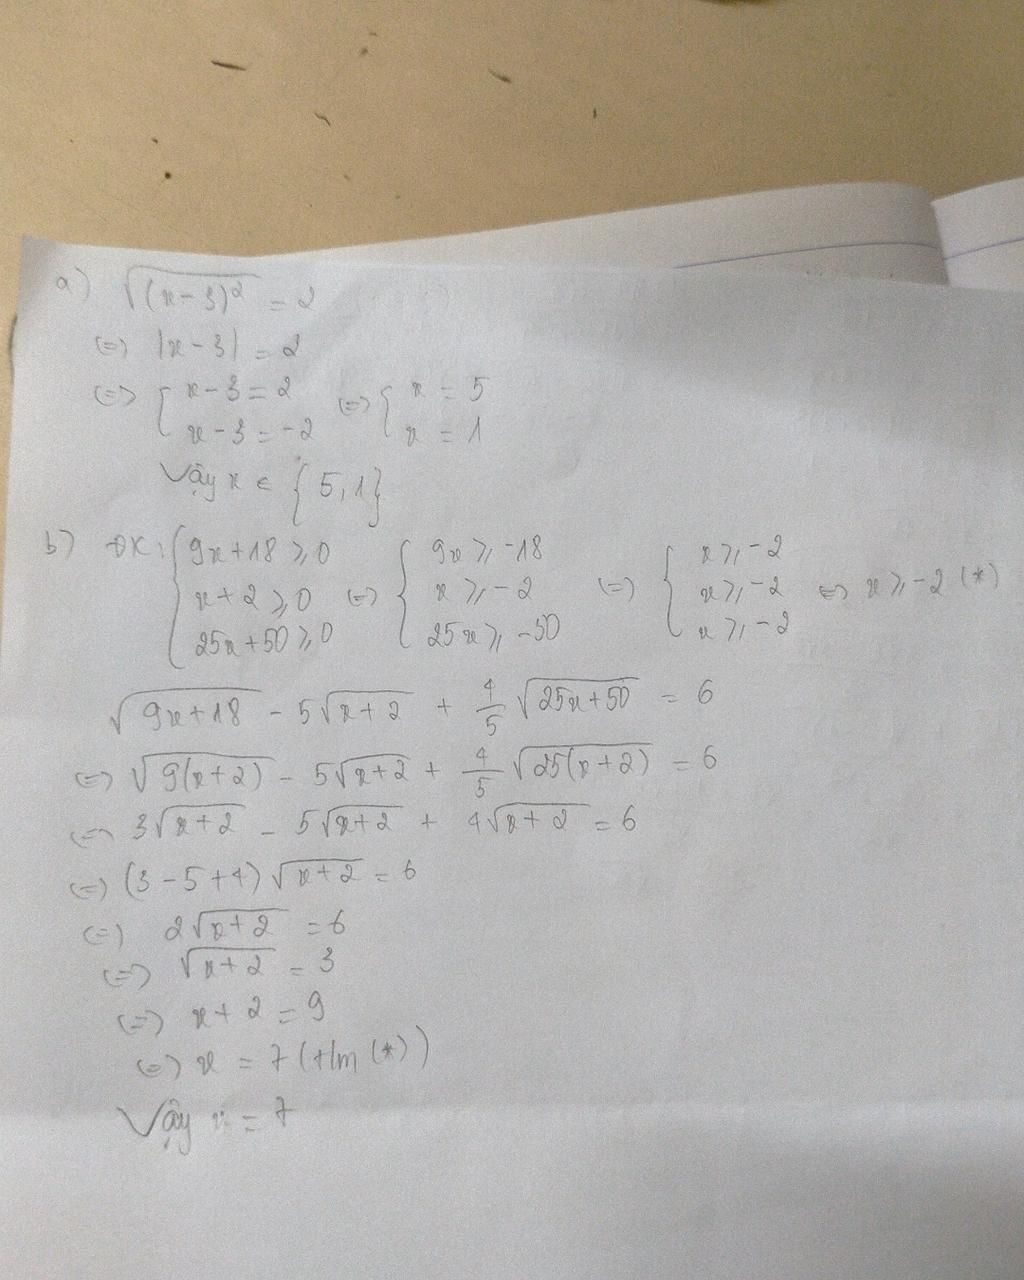 a) √(x-3)² = 2
⇔ |x-3| = 2
⇔ { x-3 = 2 ⇔ { x = 5
x-3 = -2 x = 1
Vậy x ∈ {5,1}
b) ĐK: { 9x+18 ≥ 0 ⇔ { 9x ≥ -18 ⇔ { x ≥ -2
x+2 ≥ 0 x ≥ -2 x ≥ -2 ⇔ x ≥ -2 (*)
25x+50 ≥ 0 25x ≥ -50 x ≥ -2
√(9x+18) - 5√(x+2) + 4/5 √(25x+50) = 6
⇔ √(9(x+2)) - 5√(x+2) + 4/5 √(25(x+2)) = 6
⇔ 3√(x+2) - 5√(x+2) + 4√(x+2) = 6
⇔ (3-5+4)√(x+2) = 6
⇔ 2√(x+2) = 6
⇔ √(x+2) = 3
⇔ x+2 = 9
⇔ x = 7 (tlm (*))
Vậy x = 7